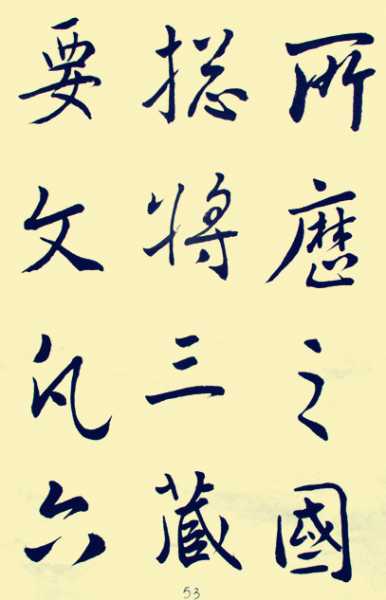 所歷之國
揔將三藏
要文凡六
53